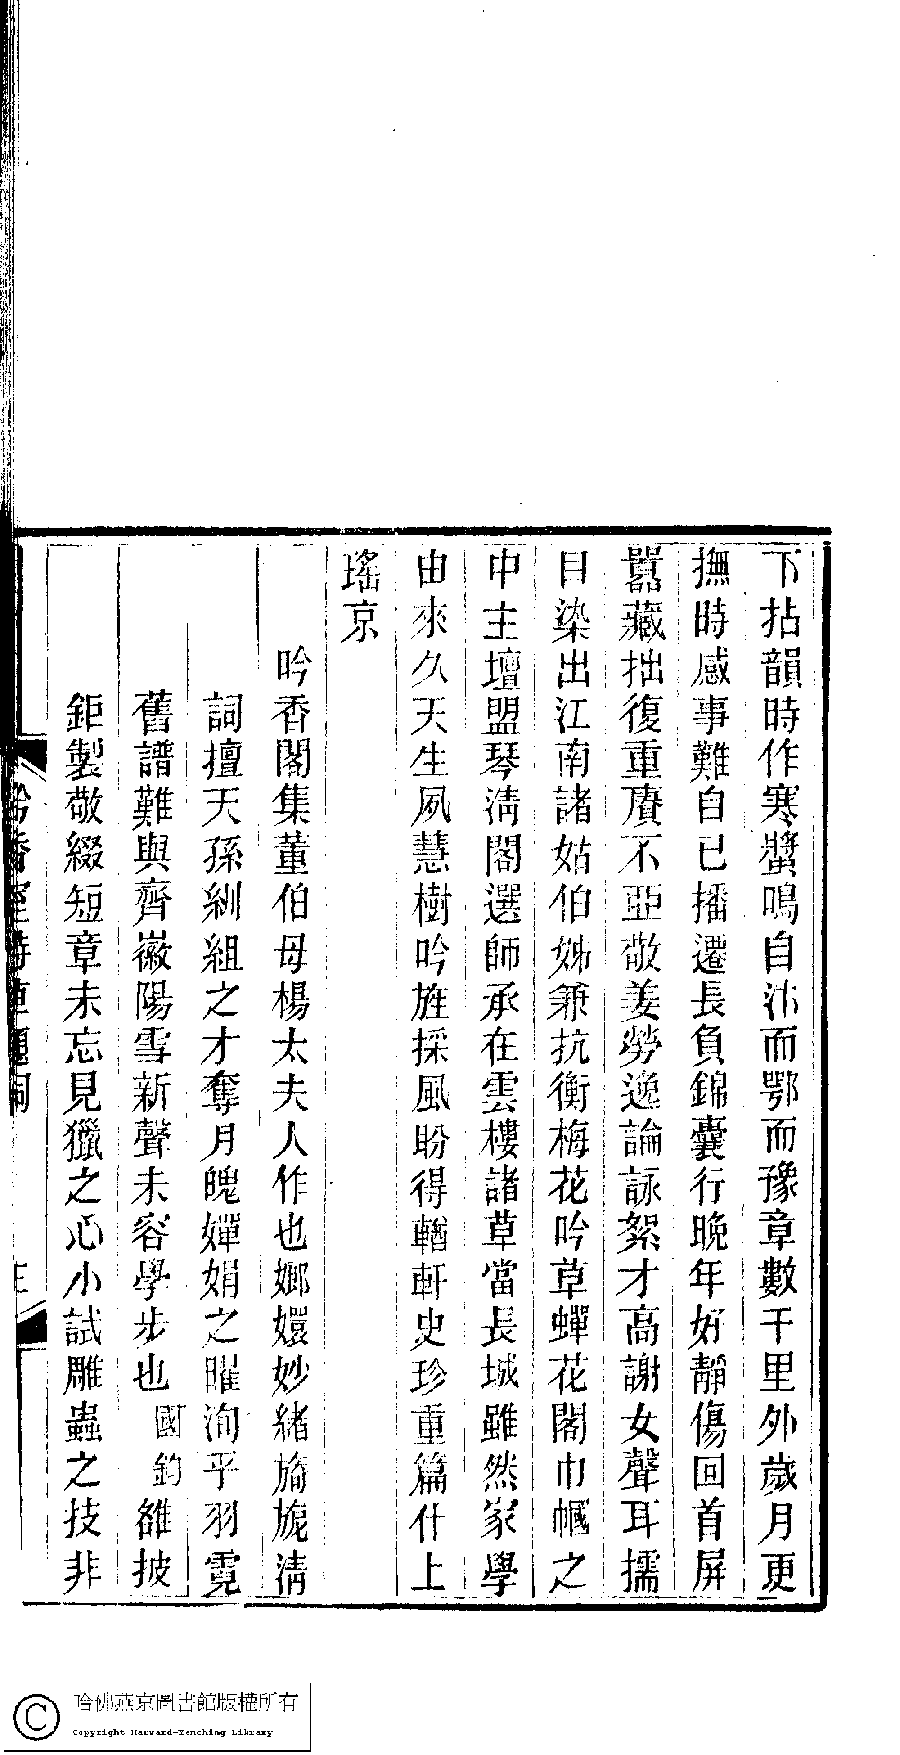 下拈韻時作寒螿鳴自汴而鄂而豫章數千里外歲月更
撫時感事難自已播遷長負錦囊行晚年好靜傷回首屏
囂藏拙復重賡不亞敬姜勞逸論詠絮才高謝女聲耳擩
目染出江南諸姑伯姊兼抗衡梅花吟草蟬花閣巾幗之
中主壇盟琴清閣選師承在雲樓諸草當長城雖然家學
由來久天生夙慧樹吟旌採風盼得輶軒史珍重篇什上
瑤京
吟香閣集董伯母楊太夫人作也嫏嬛妙緒旖旎清
詞擅天孫紃組之才奪月魄嬋娟之曜洵乎羽霓
舊譜難與齊徽陽雪新聲未容學步也國鈞雒披
鉅製敬綴短章未忘見獵之心小試雕蟲之技非
吟香室詩草題詞
哈佛燕京圖書館版權所有
Copyright Harvard-Yenching Library